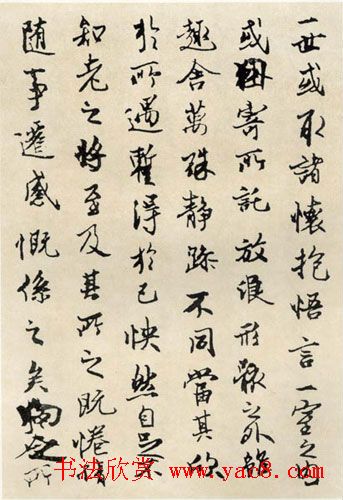 一世或取諸懷抱悟言一室之内
或因寄所託放浪形骸之外雖
趣舍萬殊静躁不同當其欣
於所遇暫得於己怏然自足不
知老之將至及其所之既惓情
随事遷感慨係之矣向之所
书法欣赏 www.yac8.com